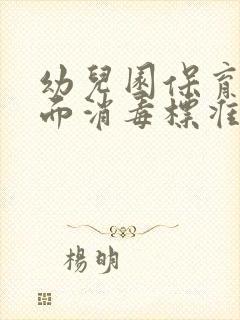 幼兒園保育
而消毒標准
楊明